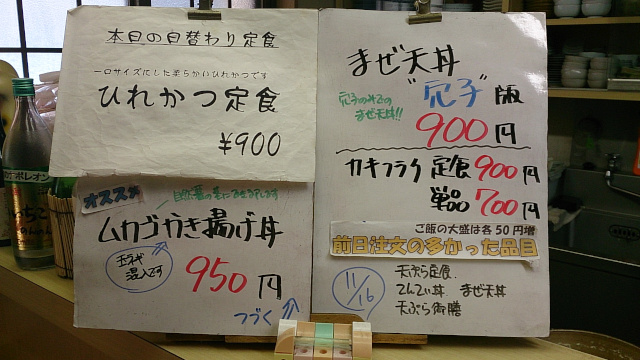 本日の日替わり定食
一口サイズにした柔らかいひれかつです
ひれかつ定食
¥900
オススメ
ムカゴかき揚げ丼
玉ネギ
混入です
950円
つづく
まぜ天丼
"穴子"版
穴子のみでの
まぜ天丼!!
900円
カキフライ 定食 900円
単品 700円
ご飯の大盛は各50円増
前日注文の多かった品目
11/16
天ぷら定食、
てんてい丼 まぜ天丼
天ぷら御膳
ナポレオン